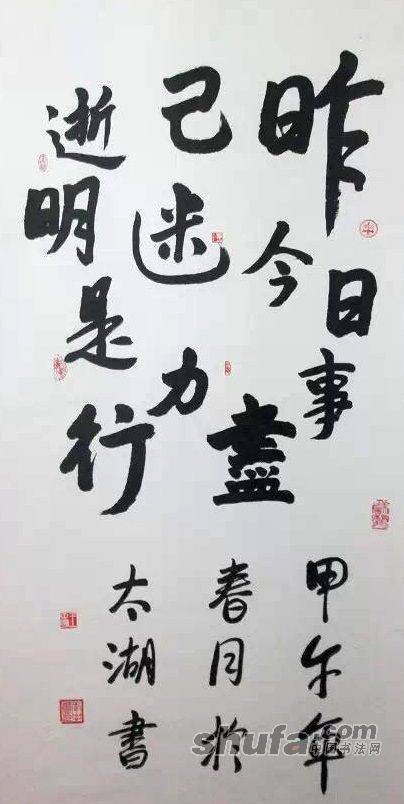 昨今日事盡
己迷力
逝明是行
甲午年
春月於
太湖書
shufa.com
中国书法网